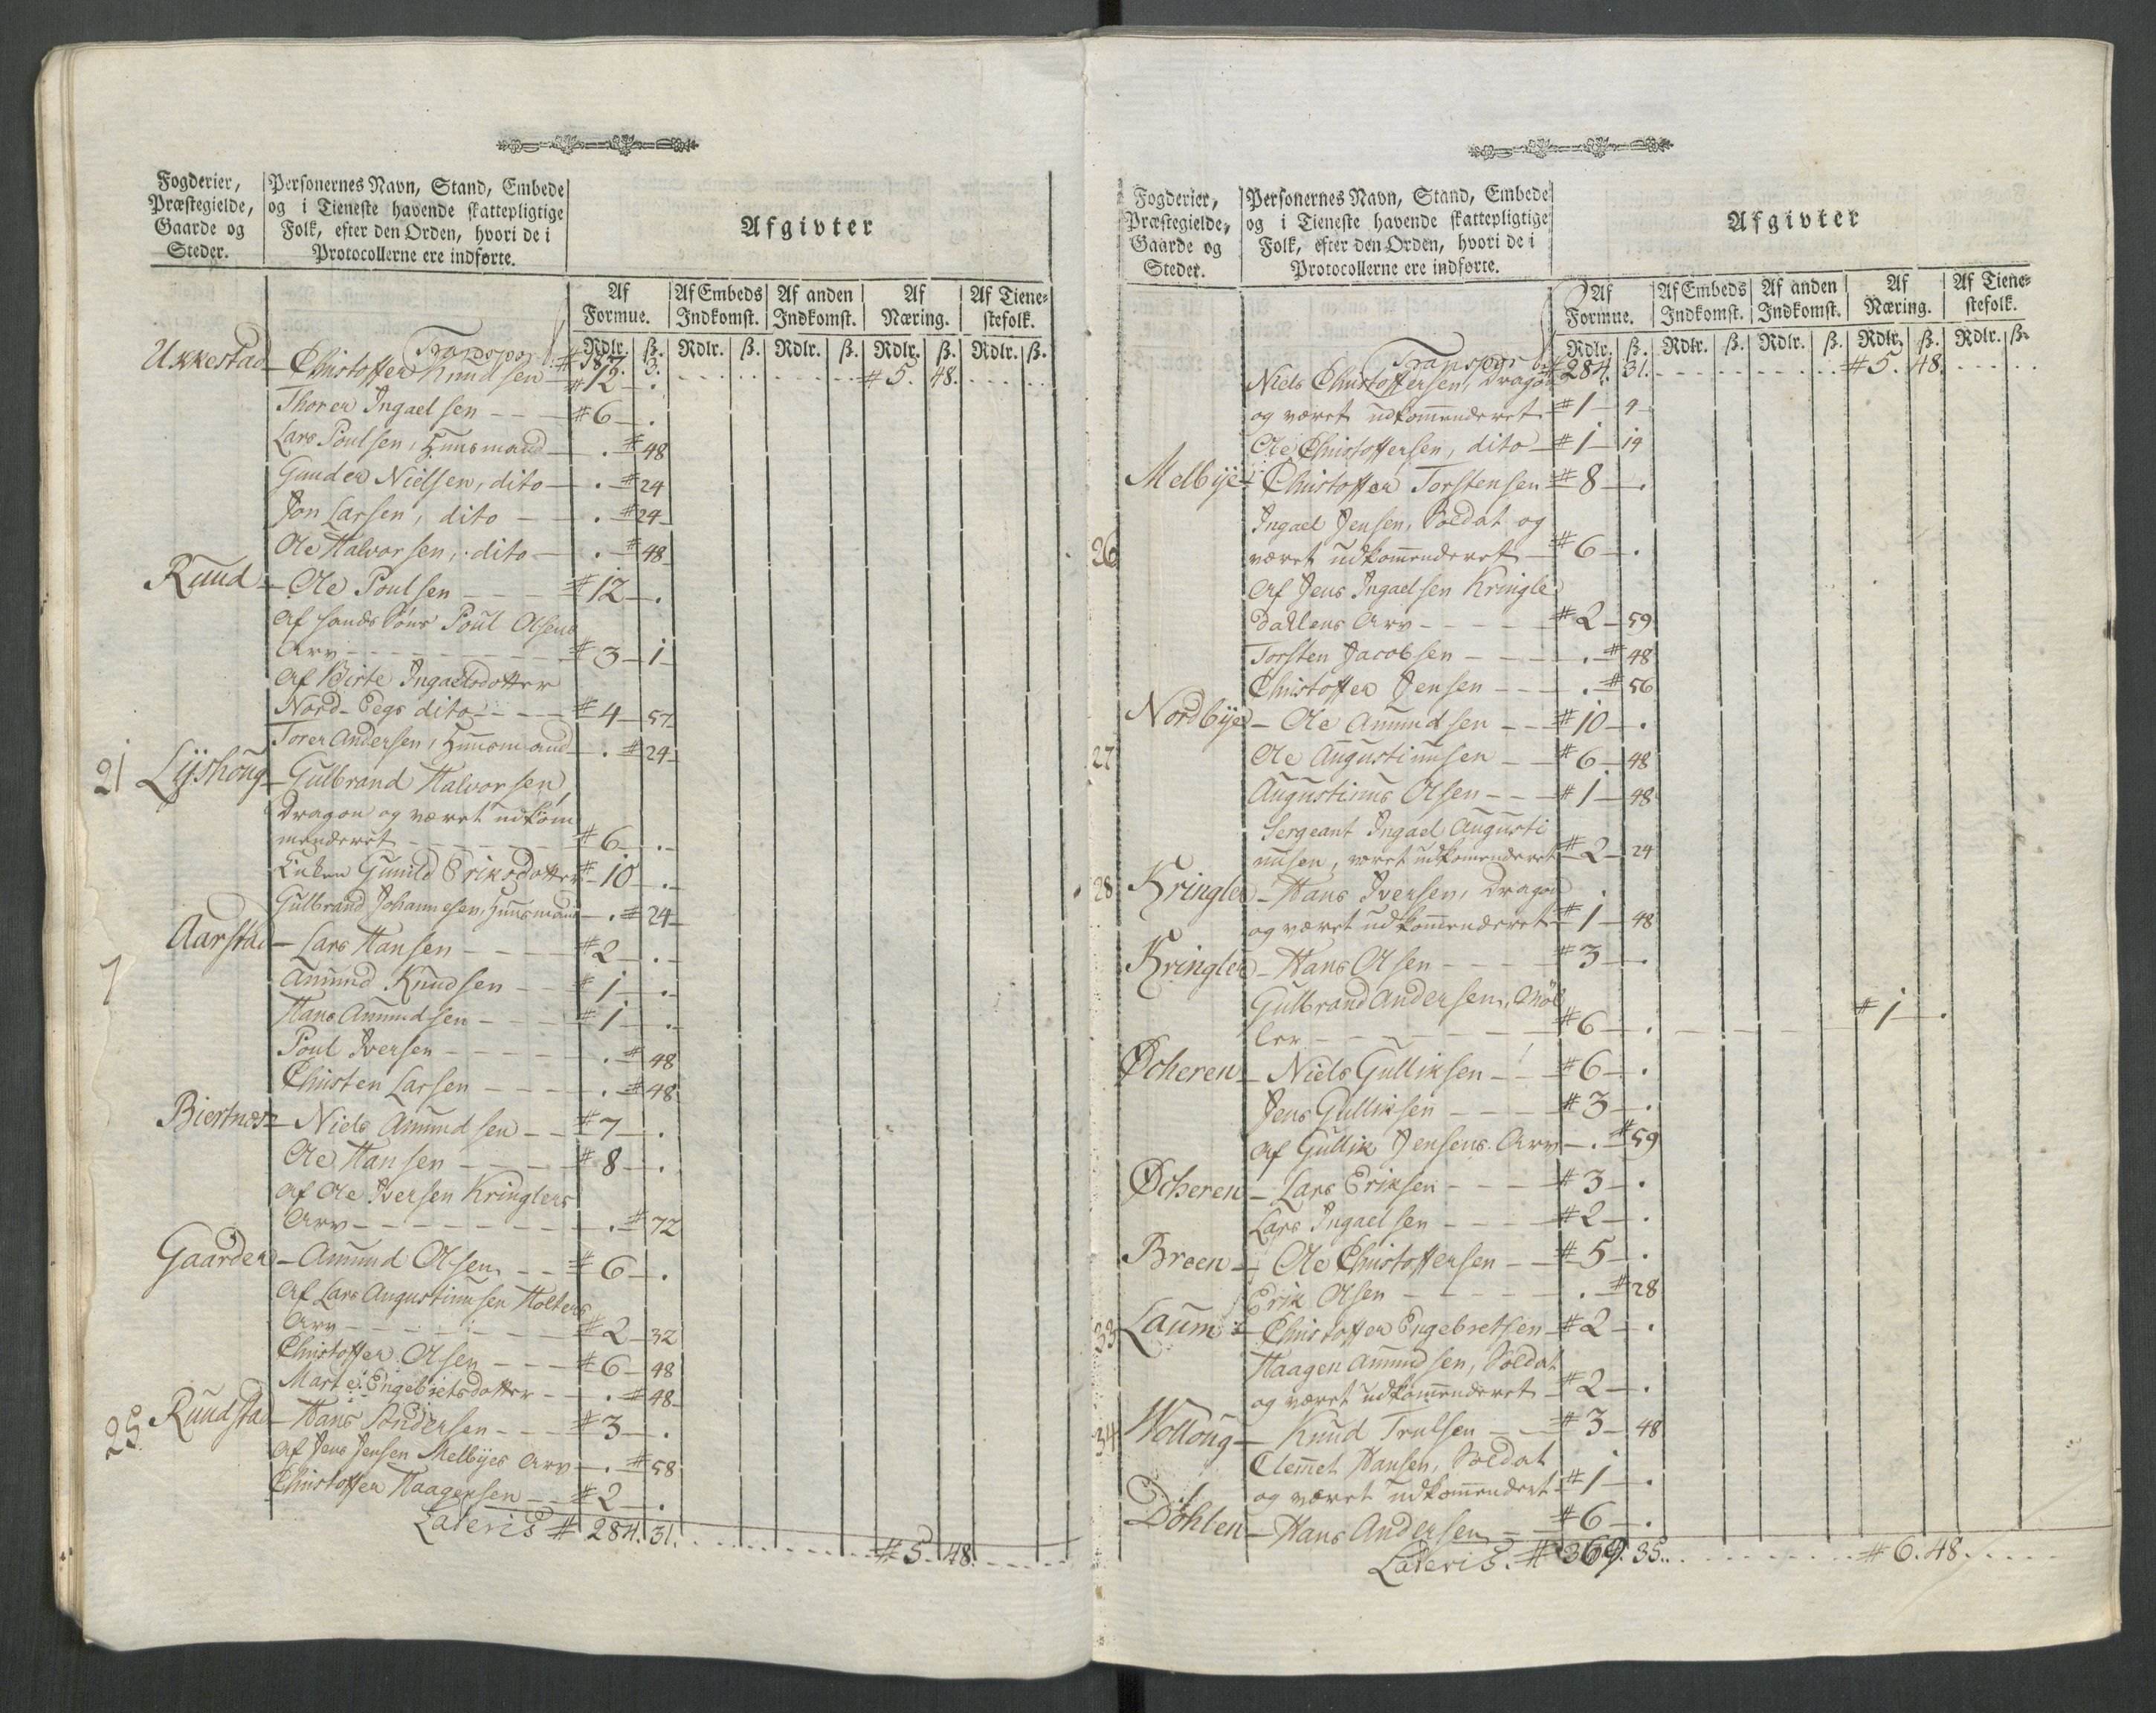 Fogderier,
Præstegielde,
Gaarde og
Steder.
Personernes Navn, Stand, Embede
og i Tieneste havende skattepligtige
Folk, efter den Orden, hvori de i
Protocollerne ere indførte.
Afgivter
Af Formue. Af Embeds Indkomst. Af anden Indkomst. Af Næring. Af Tienestefolk.
Rdlr. ß. Rdlr. ß. Rdlr. ß. Rdlr. ß. Rdlr. ß.
Transport # 187. 3. # 5. 48.
Ukkestad - Christoffer Knudsen - # 12 - .
Thorer Ingaelsen - - - # 6 - .
Lars Poulsen, Huusmand - . # 48
Gunder Nielsen, dito - . # 24
Jon Larsen, dito - - . # 24
Ole Halvorsen, dito - . # 48
Ruud - Ole Poulsen - - - # 12 - .
Af hands Søns Poul Olsens
Arv - - - # 3 - 1
Af Birte Ingaelsdotter
Nord-Eegs dito - - - # 4 - 57
Torer Andersen, Huusmand - . # 24
21 Lyshoug - Gulbrand Halvorsen,
Dragon og været udkom
menderet - - - # 6 - .
Enken Gunild Eriksdotter # 10 - .
Gulbrand Johannesen, Huusmand - . # 24
Aarstad - Lars Hansen - - - # 2 - .
7
Amund Knudsen - - # 1 - .
Hans Amundsen - - # 1 - .
Poul Iversen - - - . # 48
Christen Larsen - - - . # 48
Biertnes - Niels Amundsen - - # 7 - .
Ole Hansen - - - # 8 - .
Af Ole Iversen Kringlers
Arv - - - . # 72
Gaarder - Amund Olsen - - # 6 - .
Af Lars Augustinusen Holtens
Arv - - - # 2 - 32
Christoffer Olsen - - - # 6 - 48
Marte Engebretsdotter - - . # 48
25 Ruudstad - Hans Andersen - - - # 3 - .
Af Jens Jensen Melbyes Arv - . # 58
Christoffer Haagensen - - # 2 - .
Lateris # 284. 31. # 5. 48.
Fogderier,
Præstegielde,
Gaarde og
Steder.
Personernes Navn, Stand, Embede
og i Tieneste havende skattepligtige
Folk, efter den Orden, hvori de i
Protocollerne ere indførte.
Afgivter
Af Formue. Af Embeds Indkomst. Af anden Indkomst. Af Næring. Af Tienestefolk.
Rdlr. ß. Rdlr. ß. Rdlr. ß. Rdlr. ß. Rdlr. ß.
Transport # 284. 31. # 5. 48.
Niels Christoffersen, Dragon
og været udkommenderet # 1 - 4
Ole Christoffersen, dito - # 1 - 19
Melbye - Christoffer Torstensen # 8 - .
Ingael Jensen, Soldat og
26 været udkommenderet # 6 - .
Af Jens Ingaelsen Kringler
dallens Arv - - - # 2 - 59
Torsten Jacobsen - - - . # 48
Christoffer Jensen - - - . # 56
Nordbye - Ole Amundsen - - # 10 - .
27 Ole Augustinusen - - # 6 - 48
Augustinus Olsen - - - # 1 - 48
Sergeant Ingael Augusti
nusen, været udkommenderet # 2 - 24
28 Kringler - Hans Iversen, Dragon
og været udkommenderet # 1 - 48
Kringler - Hans Olsen - - - # 3 - .
Gulbrand Andersen, Møl
ler - - - # 6 - . # 1 - .
Øcheren - Niels Gulliksen - - # 6 - .
Jens Gulliksen - - - # 3 - .
Af Gullik Jensens Arv - . # 59
Øcheren - Lars Eriksen - - - # 3 - .
Lars Ingaelsen - - - # 2 - .
Breen - Ole Christoffersen - - # 5 - .
Erik Olsen - - - . # 28
33 Laum - Christoffer Engebretsen # 2 - .
Haagen Amundsen, Soldat
og været udkommenderet # 2 - .
34 Wolloug - Knud Trulsen - - # 3 - 48
Clemet Hansen, Soldat
og været udkommendert # 1 - .
Døhlen - Hans Andersen - - # 6 - .
Lateris. # 369. 35. # 6. 48.